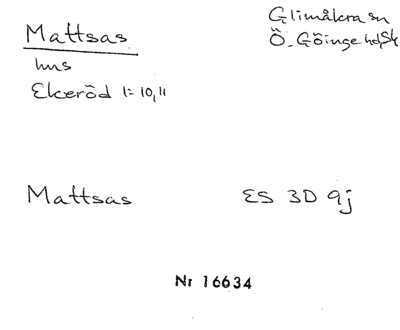 Mattsas
Glimåkra sn
Ö. Göinge hd, Sk
hus
Ekeröd 1=10,11
Mattsas
ES 3D 9j
Nr 16634